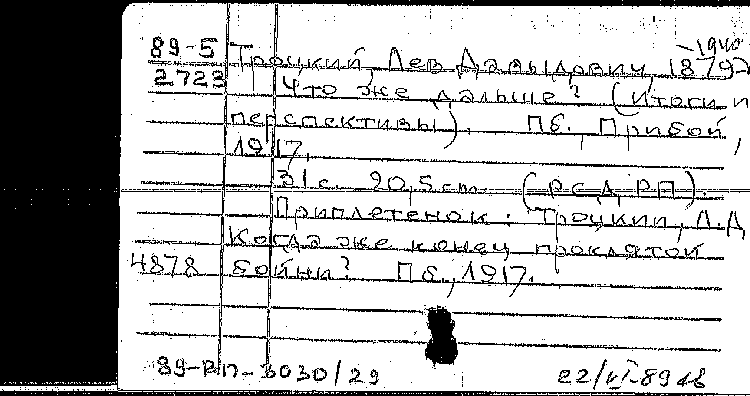 -1940
89-5 Троцкий, Лев Давыдович, 1879-
2723 Что же дальше? (Итоги и
перспективы). Пб., Прибой,
1917.
31 с. 20,5 cm. (РСДРП).
Приплетенок: Троцкий, Л.Д.
Когда же конец проклятой
4878 бойни? Пб., 1917.
89-РП-3030/29 22/VI-89